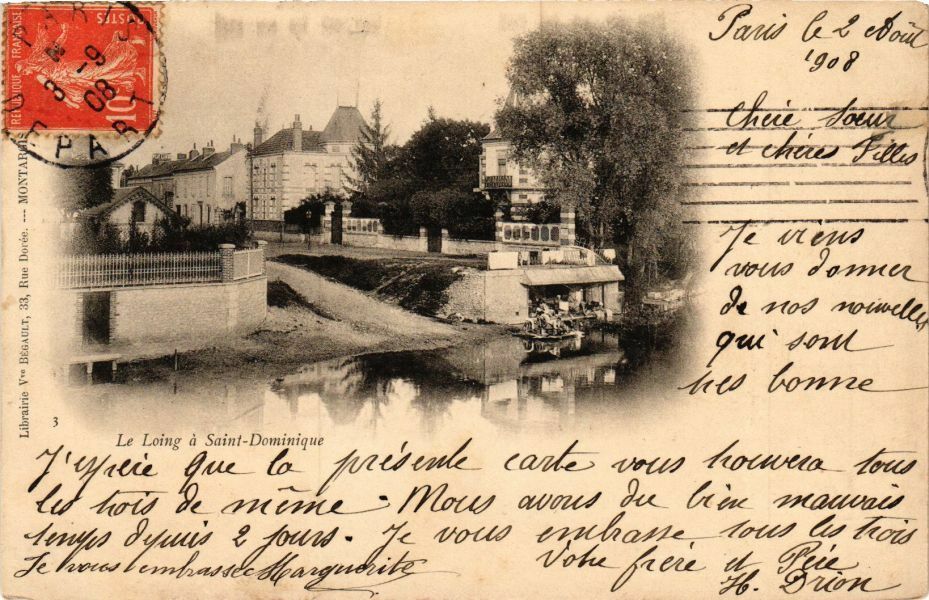 Paris le 2 Août
1908
Chère Sœur
et chères Filles
Je viens
vous donner
de nos nouvelles
qui sont
tres bonne
J'espère que la présente carte vous trouvera tous
les trois de même. Nous avons du bien mauvais
temps depuis 2 jours. Je vous embrasse tous les trois
Votre frère et Père
H. Drion
Je vous embrasse Marguerite
Le Loing à Saint-Dominique
3
Librairie Vve BÉGAULT, 33, Rue Dorée. — MONTARGIS
REPUBLIQUE FRANÇAISE
POSTES
10
PARIS
8-9
08
DEPART